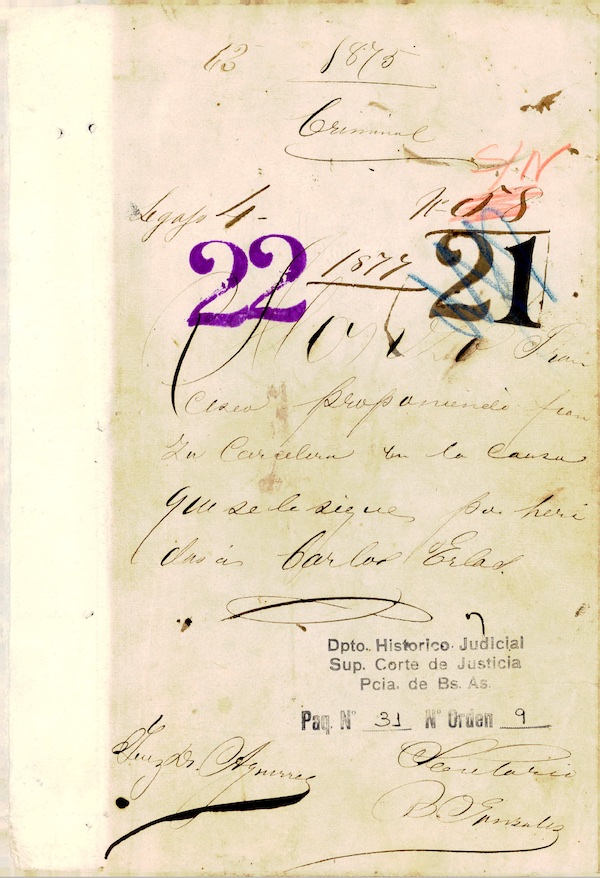 13 1875
Criminal
S/N
Legajo 4- Nº 158
22 1877 21
Fran
cisco proponiendo fian
za Carcelera en la Causa
que se le sigue por heri
das á Carlos
Dpto. Historico Judicial
Sup. Corte de Justicia
Pcia. de Bs. As.
Paq. Nº 31 Nº Orden 9
Juez Dr. Aguirre Secretario
B. Gonzalez